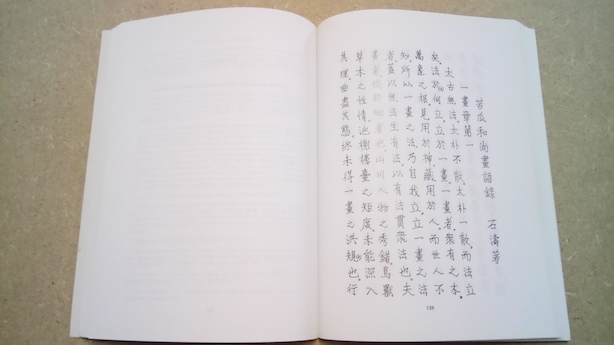 苦瓜和尚畫語錄 石濤著
一畫章第一
太古無法,太朴不散,太朴一散,而法立
矣。法於何立,立於一畫。一畫者,眾有之本,
萬象之根,見用於神,藏用於人,而世人不
知,所以一畫之法,乃自我立。立一畫之法
者,蓋以無法生有法,以有法貫眾法也。夫
畫者,從於心者也。山川人物之秀錯,鳥獸
草木之性情,池榭樓臺之矩度,未能深入
其理,曲盡其態,終未得一畫之洪規也。行